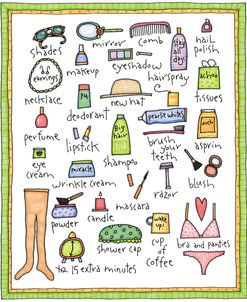 shades
mirror
comb
stay all day
nail polish
earrings
makeup
eyeshadow
hairspray
achoo
tissues
necklace
deodorant
new hat
perfume
lipstick
Big hair
shampoo
pearlie whites
brush your teeth
ouch
asprin
eye cream
miracle
wrinkle cream
mascara
razor
blush
powder
candle
wake up
cup of coffee
bra and panties
shower cap
15 extra minutes